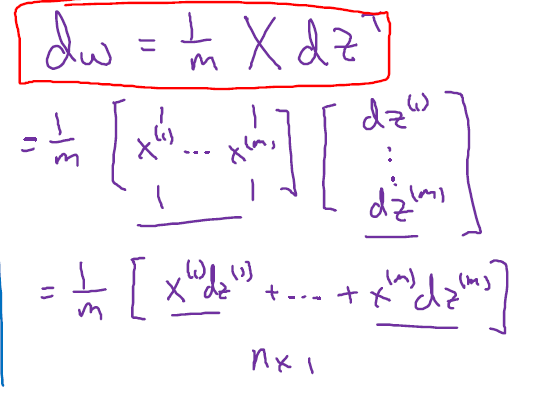 dw = 1/m X dz^T
= 1/m [ x^(1) ... x^(m) ] [ dz^(1) ⋮ dz^(m) ]
= 1/m [ x^(1)dz^(1) + ... + x^(m)dz^(m) ]
n x 1